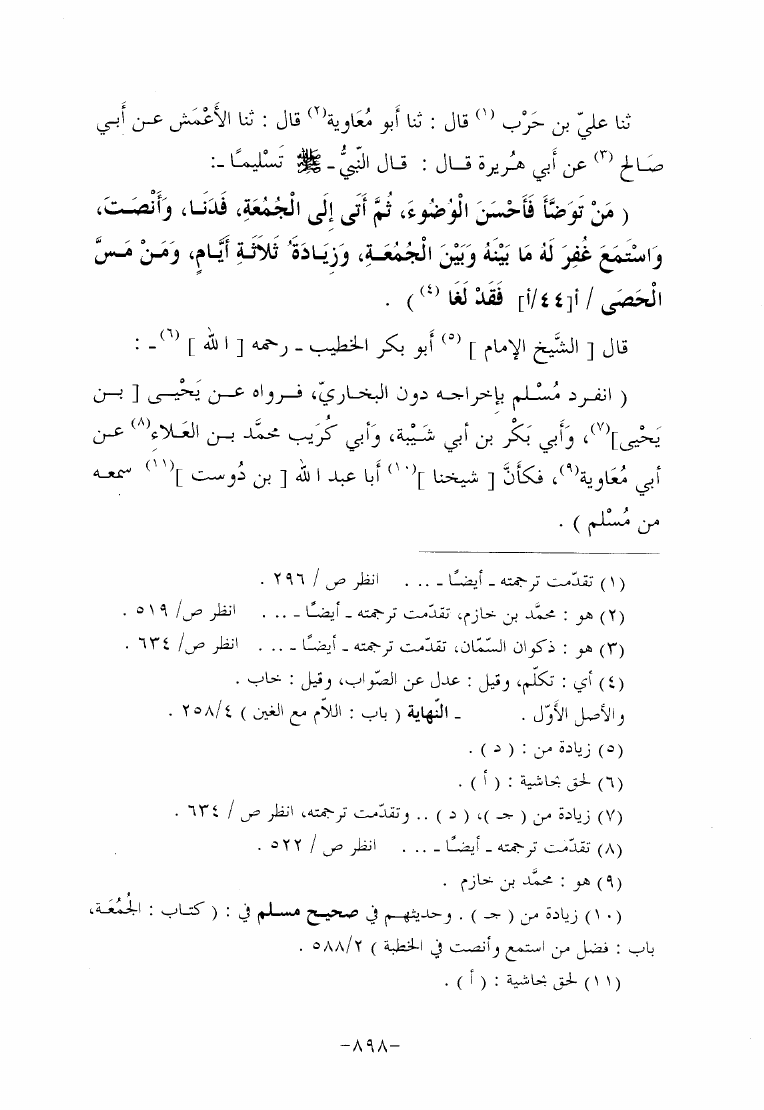 ثنا عليّ بن حَرْب (١) قال : ثنا أبو مُعَاوية(٢) قال : ثنا الأَعْمَش عـن أَبـي
صالح (٣) عن أبي هُـريرة قـال : قـال النَّبيُّ ـ ﷺ تَسْليمًـا ـ:
( مَنْ تَوَضَّأَ فَأَحْسَنَ الْوُضُوءَ، ثُمَّ أَتَى إِلَى الْجُمُعَةِ، فَدَنَـا، وَأَنْصَـتَ،
وَاسْتَمَعَ غُفِرَ لَهُ مَا بَيْنَهُ وَبَيْنَ الْجُمُعَـةِ، وَزِيَـادَةُ ثَلاَثَـةِ أَيَّـامٍ، وَمَـنْ مَـسَّ
الْحَصَى / أ[٤٤/أ] فَقَدْ لَغَا (٤) ) .
قال [ الشَّيخ الإمام ] (٥) أبو بكر الخطيب ـ رحمه [ الله ] (٦) ـ :
( انفـرد مُسْـلم بإخراجـه دون البخـاريّ، فـرواه عـن يَحْيـى [ بـن
يَحْيى](٧)، وأبي بَكْر بن أبي شَـيْبة، وأبي كُرَيب محمَّـد بـن العَـلاء(٨) عـن
أبي مُعَاوية(٩)، فكأنَّ [ شيخنا ](١٠) أبا عبد الله [ بن دُوست ](١١) سمعـه
من مُسْلم ) .
(١) تقدّمت ترجمته ـ أيضًـا ـ ... . انظر ص / ٢٩٦ .
(٢) هو : محمَّد بن خازم، تقدّمت ترجمته ـ أيضًـا ـ ... . انظر ص/ ٥١٩ .
(٣) هو : ذكوان السَّمَّان، تقدّمت ترجمته ـ أيضًـا ـ ... . انظر ص/ ٦٣٤ .
(٤) أي : تكلَّم، وقيل : عدل عن الصَّواب، وقيل : خاب .
والأصل الأوّل . ـ النِّهاية ( باب : اللاَّم مع الغين ) ٢٥٨/٤ .
(٥) زيادة من : ( د ) .
(٦) لحق بحاشية : ( أ ) .
(٧) زيادة من ( جـ )، ( د ) .. وتقدّمت ترجمته، انظر ص / ٦٣٤ .
(٨) تقدّمت ترجمته ـ أيضًـا ـ ... . انظر ص / ٥٢٢ .
(٩) هو : محمَّد بن خازم .
(١٠) زيادة من ( جـ ) . وحديثهـم في صحيح مسلم في : ( كتـاب : الجُمُعـة،
باب : فضل من استمع وأنصت في الخطبة ) ٥٨٨/٢ .
(١١) لحق بحاشية : ( أ ) .
-٨٩٨-